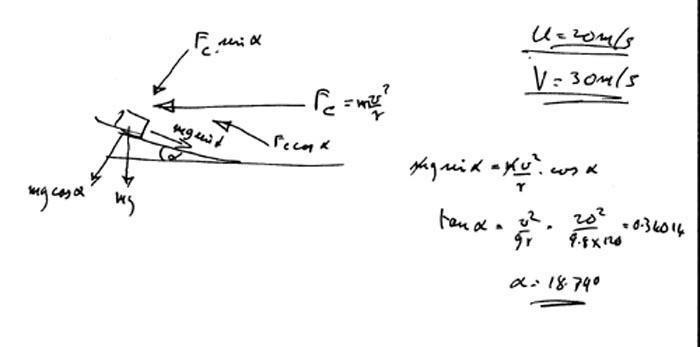 F_c sin α
F_c = m v²/r
mg sin α
F_c cos α
α
mg cos α
mg
U = 20m/s
V = 30m/s
mg sin α = m v²/r · cos α
tan α = v²/gr = 20²/9.8×120 = 0.34014
α = 18.79°